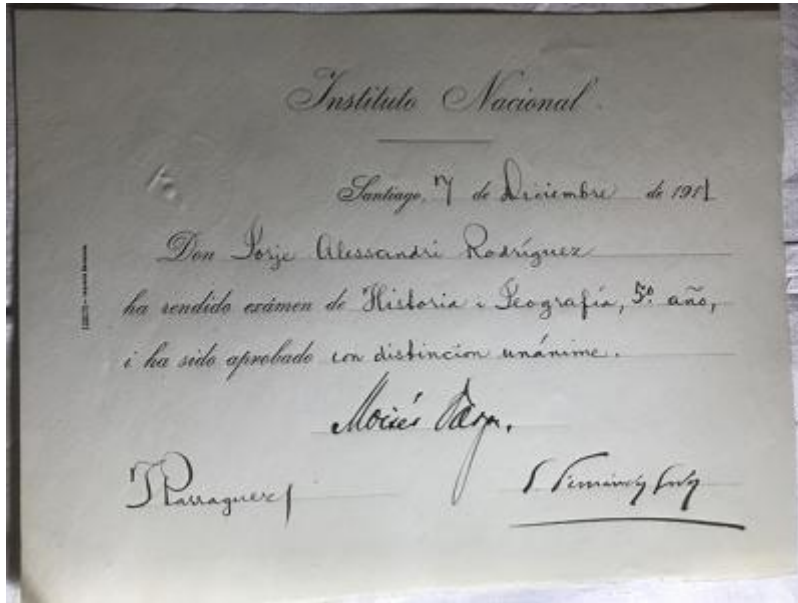 Instituto Nacional
Santiago, 7 de Diciembre de 1911
Don Jorje Alessandri Rodríguez
ha rendido exámen de Historia i Geografía, 5º año,
i ha sido aprobado con distincion unánime.
Moisés
J Parraguez